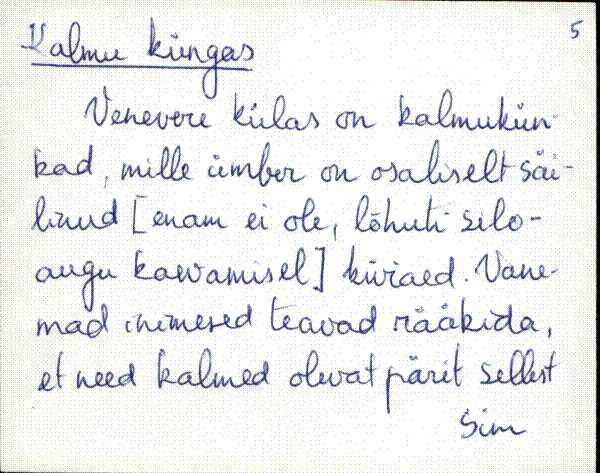 5
Kalmu küngas
Venevere külas on kalmukün-
kad, mille ümber on osaliselt säi-
linud [enam ei ole, lõhuti silo-
augu kaevamisel] kiviaed. Vane-
mad inimesed teavad rääkida,
et need kalmed olevat pärit sellest
Sim